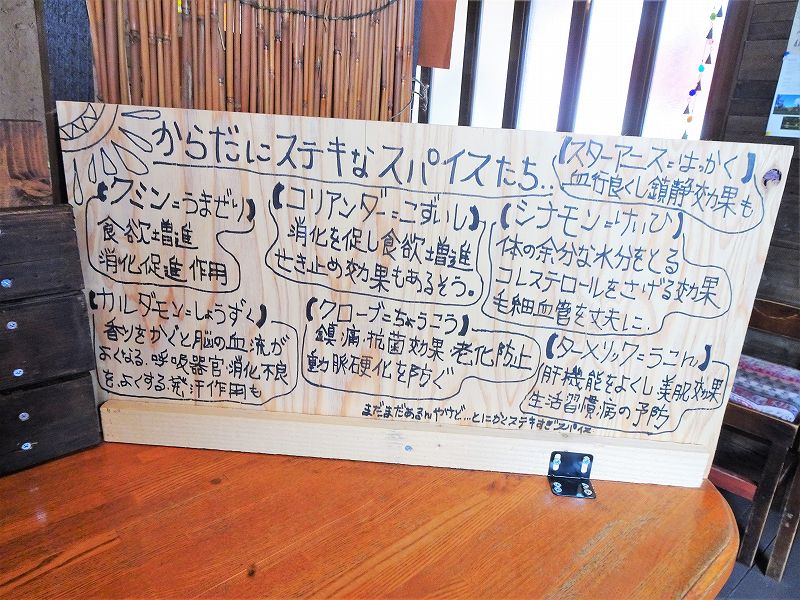 からだにステキなスパイスたち..
【スターアニス=はっかく】
血行良くし鎮静効果も
【クミン=うまぜり】
食欲増進
消化促進作用
【コリアンダー=こずいし】
消化を促し食欲増進
せき止め効果もあるそう。
【シナモン=けいひ】
体の余分な水分をとる
コレステロールをさげる効果
毛細血管を丈夫に.
【カルダモン=しょうずく】
香りをかぐと脳の血流が
よくなる.呼吸器官・消化不良
をよくする.発汗作用も
【クローブ=ちょうこう】
鎮・痛・抗菌効果・老化防止
動脈硬化を防ぐ
【ターメリック=うこん】
肝機能をよくし美肌効果
生活習慣病の予防
まだまだあるんやけど…とにかくステキすぎスパイス